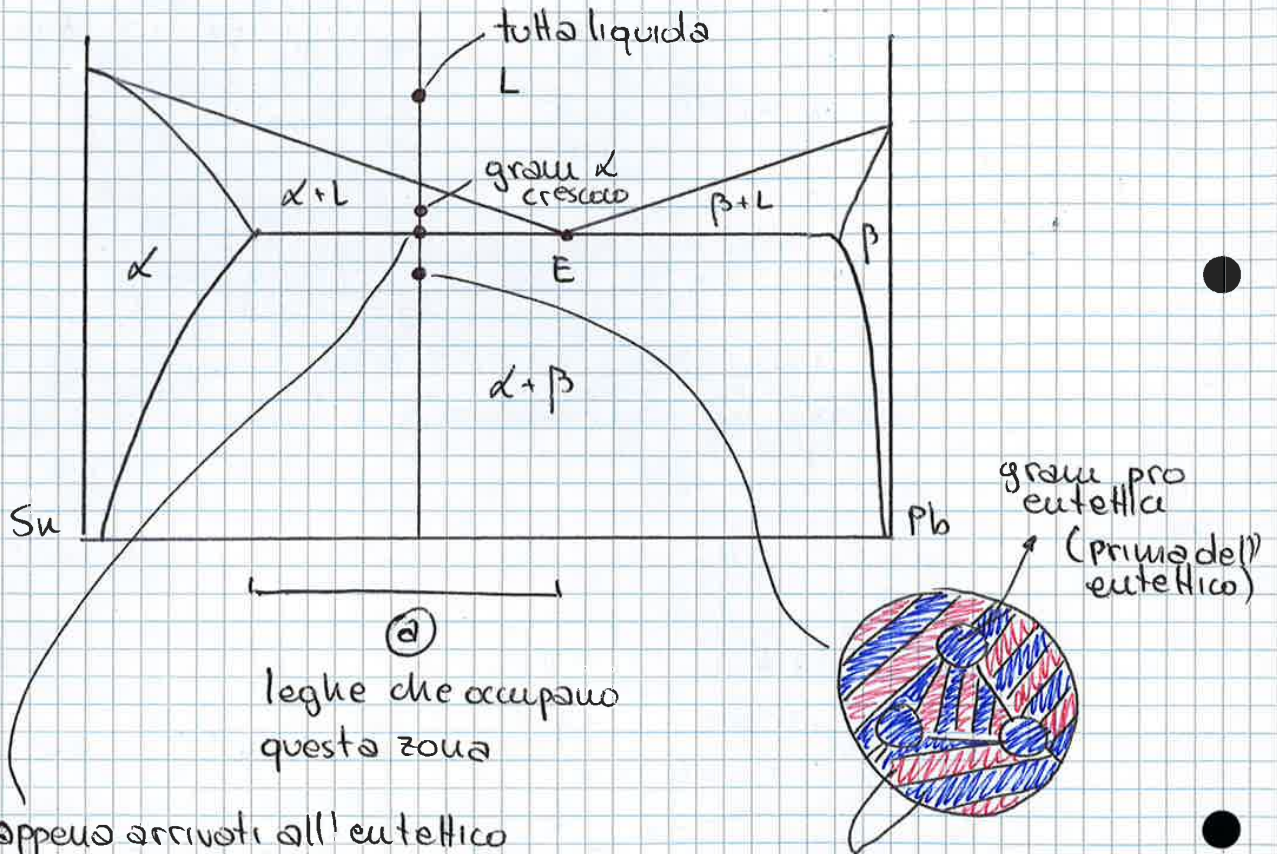 tutta liquida
L
grani α
crescono
α+L
β+L
α
β
E
α+β
Sn
Pb
grani pro
eutettici
(prima dell'
eutettico)
a
leghe che occupano
questa zona
appena arrivati all'eutettico